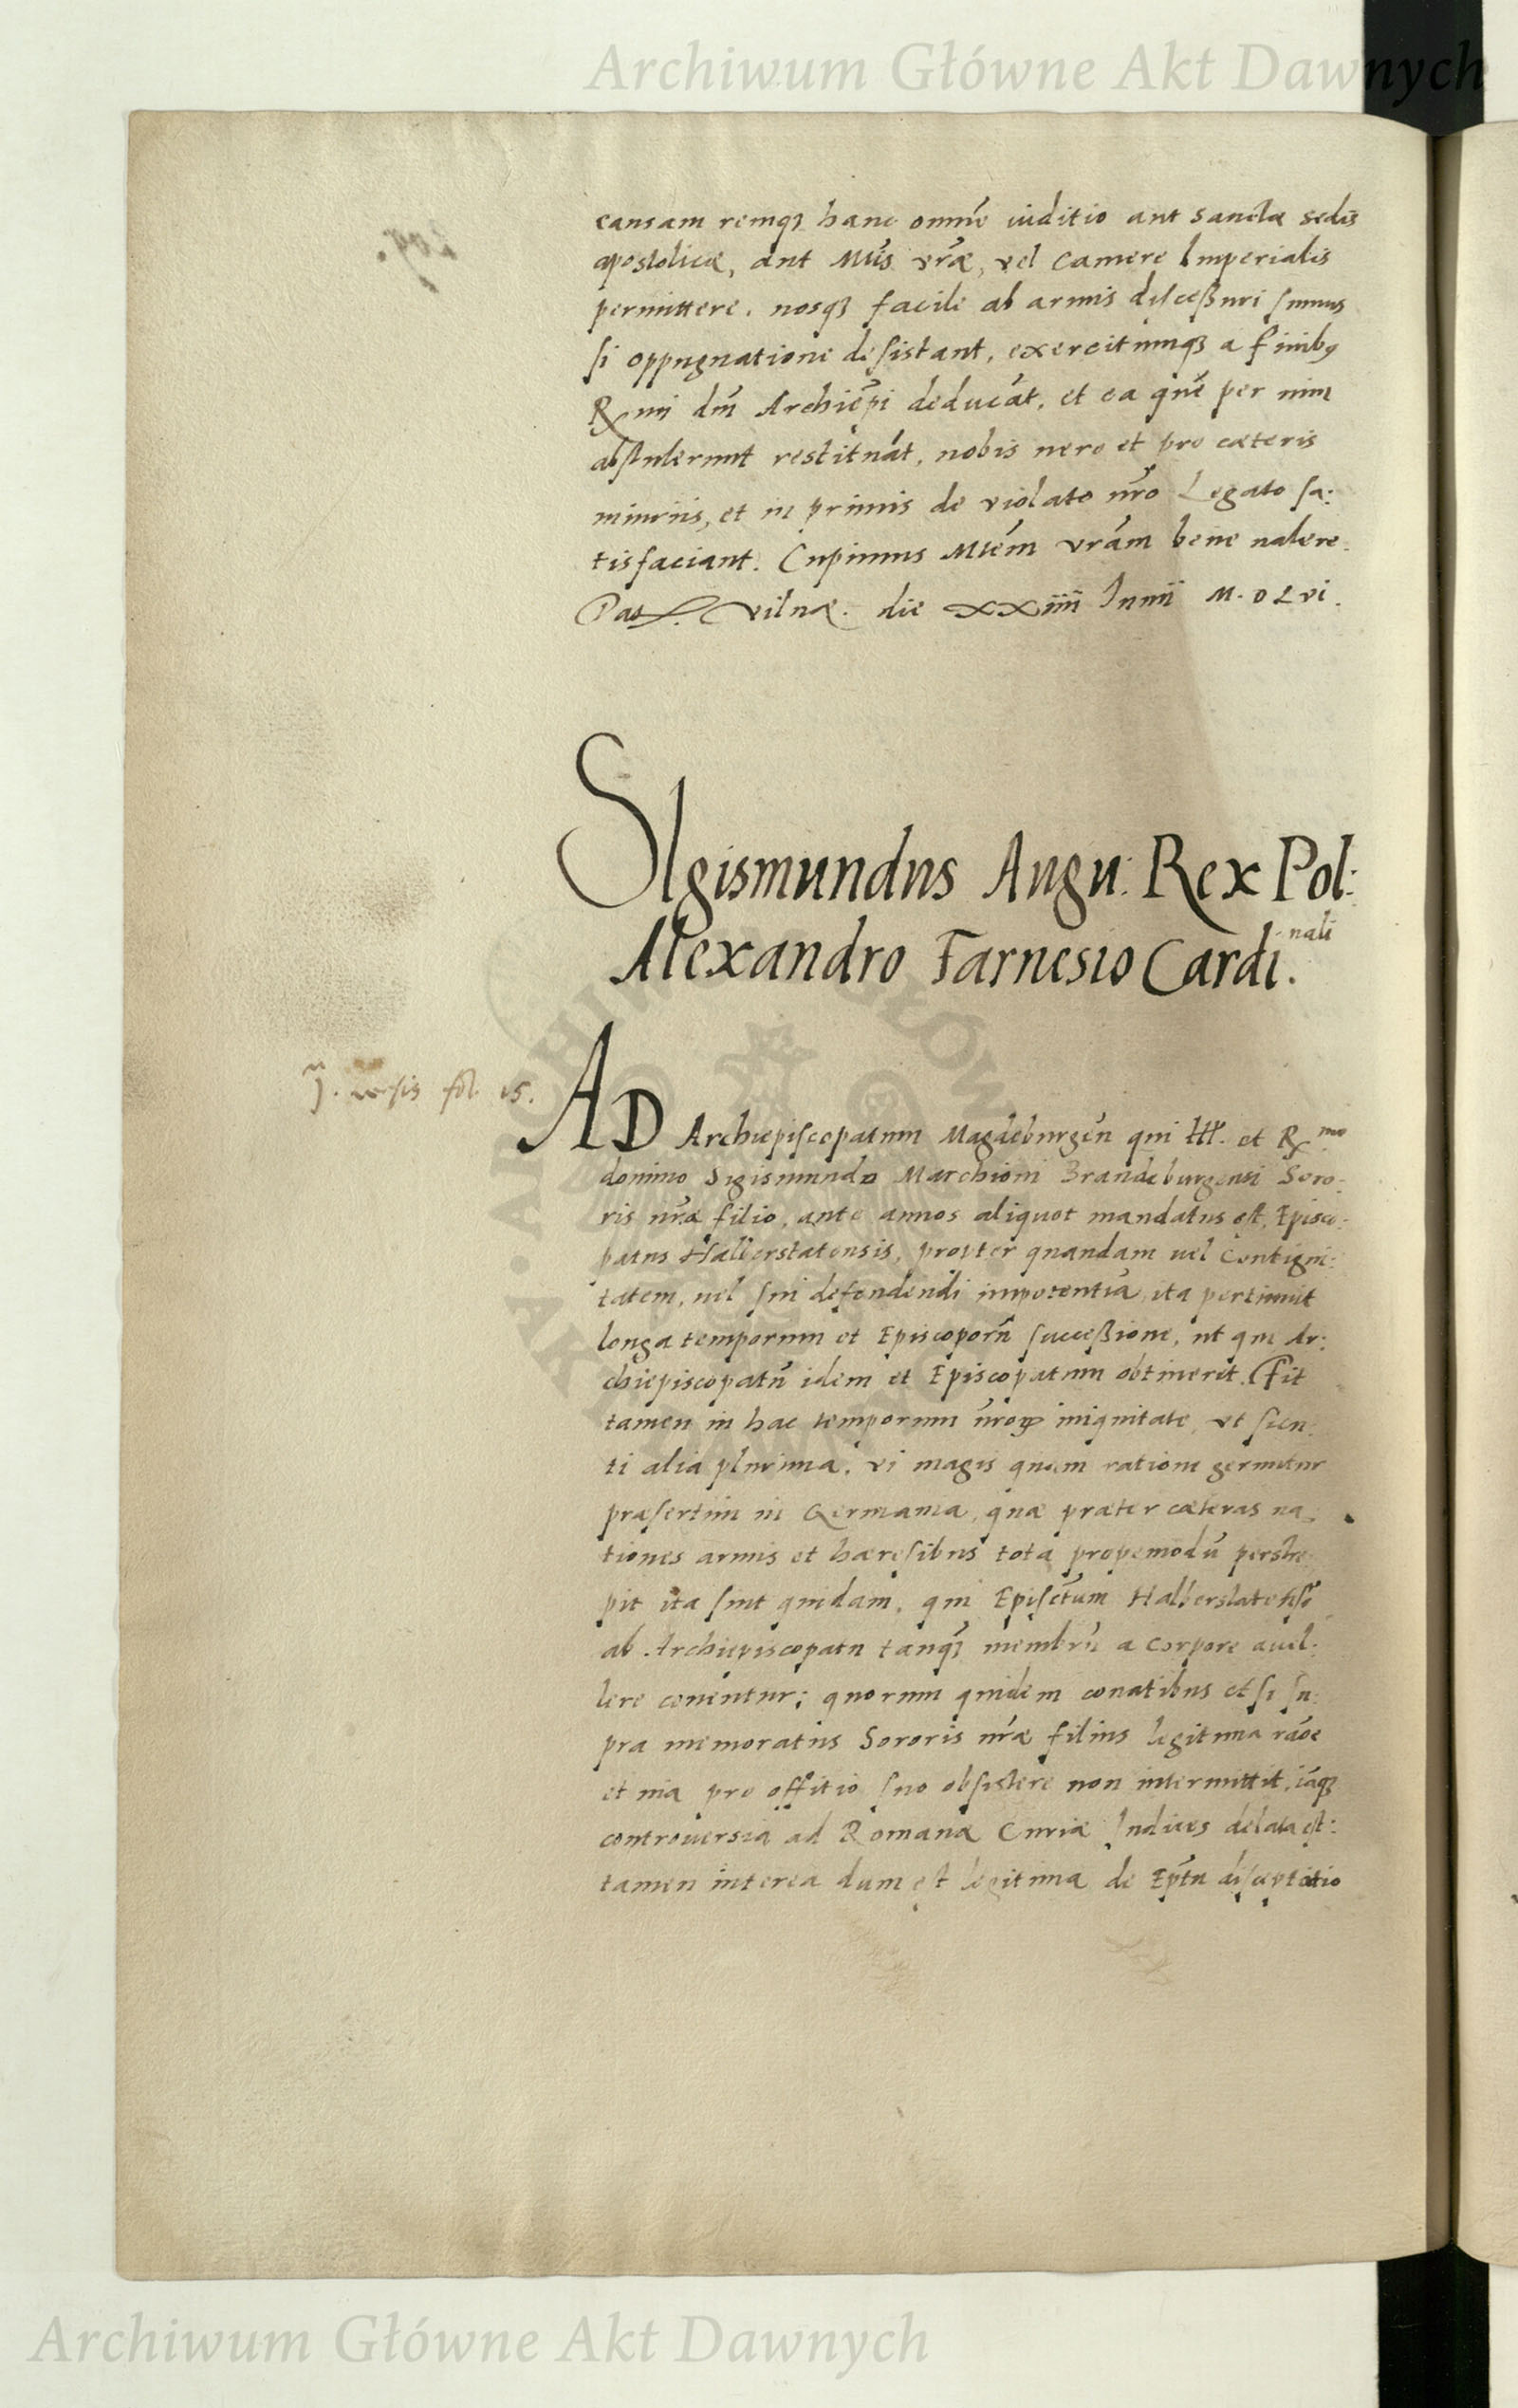 Archiwum Główne Akt Dawnych
causam remq3 hanc omnē iuditio aut sanctæ sedis
apostolicæ, aut Mtis vræ, vel Camere Imperialis
permittere, nosq3 facile ab armis discessuri sumus
si oppugnatione desistant, exercitumq3 a finibus
Rmi dni Archiepi deducāt, et ea quę per uim
abstulerunt restituāt, nobis uero et pro cæteris
iniuriis, et in primis de violato nro Legato sa:
tisfaciant. Cupimus Mtem vram bene ualere.
Dat. Vilnæ. die xxiiii Iunii M.D Lvi.
SIgismundus Augu: Rex Pol:
Alexandro Farnesio Cardinali.
fol. 15.
AD Archiepiscopatum Magdeburgen̄ qui Ill. et Rmo
domino Sigismundo Marchioni Brandeburgensi Soro:
ris nræ filio, ante annos aliquot mandatus est, Episco:
patus Halberstatensis, propter quandam uel Contigui:
tatem, uel sui defendendi impotentiā, ita pertinuit
longa temporum et Episcoporū successione, ut qui Ar:
chiepiscopatū idem et Episcopatum obtinerit. Fit
tamen in hac temporum nrorum iniquitate, vt sicu:
ti alia plurima, vi magis quam ratione geruntur
præsertim in Germania, quæ præter cæteras na:
tiones armis et hæresibus tota propemodū perstre
pit ita sint quidam, qui Episctum Halberstatensē
ab Archiepiscopatu tanq3 membrū a corpore auel:
lere conentur; quorum quidem conatibus etsi su:
pra memoratus Sororis nræ filius legitima raōe
et uia pro offitio suo obsistere non intermittit, iāq3
controuersia ad Romanæ Curiæ Iudices delata est:
tamen interea dum est legitima de Eptu disceptatio
Archiwum Główne Akt Dawnych